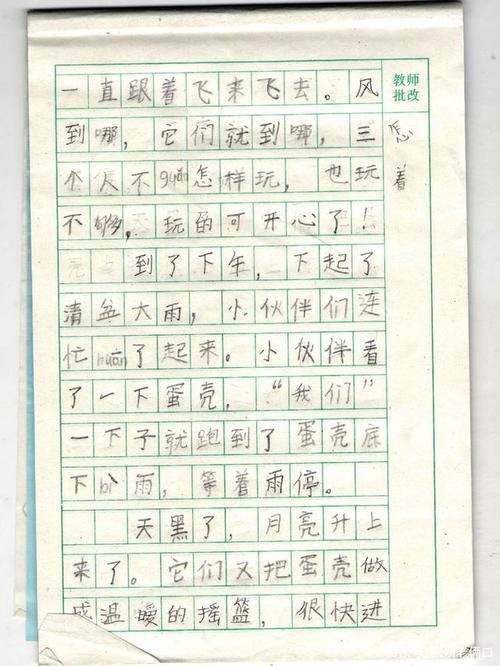 一直跟着飞来飞去。风
到哪，它们就到哪，三
个人不guǎn怎样玩，也玩
不够，玩的可开心了！
到了下午，下起了
清盆大雨，小伙伴们连
忙huāng了起来。小伙伴看
了一下蛋壳，“我们”
一下子就跑到了蛋壳底
下bì雨，等着雨停。
天黑了，月亮升上
来了。它们又把蛋壳做
成温暖的摇篮，很快进
教师
批改
着